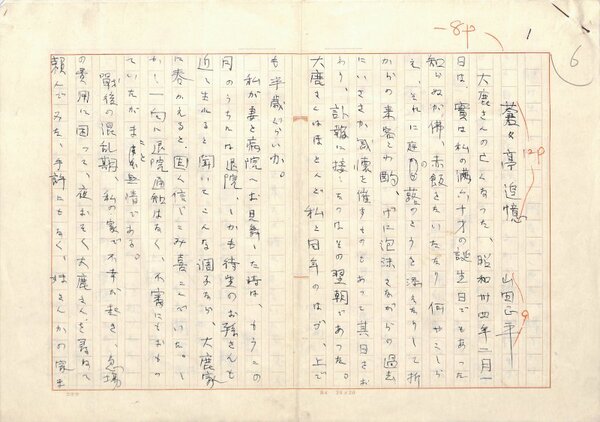 1
6
8P
蒼々亭追憶
12P
山田正平
9
大鹿さんの亡くなった、昭和卅四年二月一
日は、實は私の満六十才の誕生日でもあった
知らぬが佛、赤飯をいただたり何やこしら
え、それに庭の蕗のとうを添えたりして折
からの来客と酌、げに泡沫さながらの過去
にいささか感懐を催すものもあって其日をお
わり、訃報に接したのはその翌朝であった。
大鹿さんはほとんど私と同年のはが、上で
も半歳ぐらいか。
私が妻と病院へお見舞した時は、もうこの
月のうちには退院、しかも待望のお孫さんも
近く生れると聞いてこんな調子なら、大鹿家
は春かえると、固く信じこみ喜こんでいた。し
かし一向に退院通知はなく、不審にもおもっ
ていたがまことに無情である。
戰後の混乱期、私の家で不幸が起き、急場
の費用に困って、夜おそく大鹿さんを尋ねて
頼んでみた、手許にもなく、姉さんかの家ま